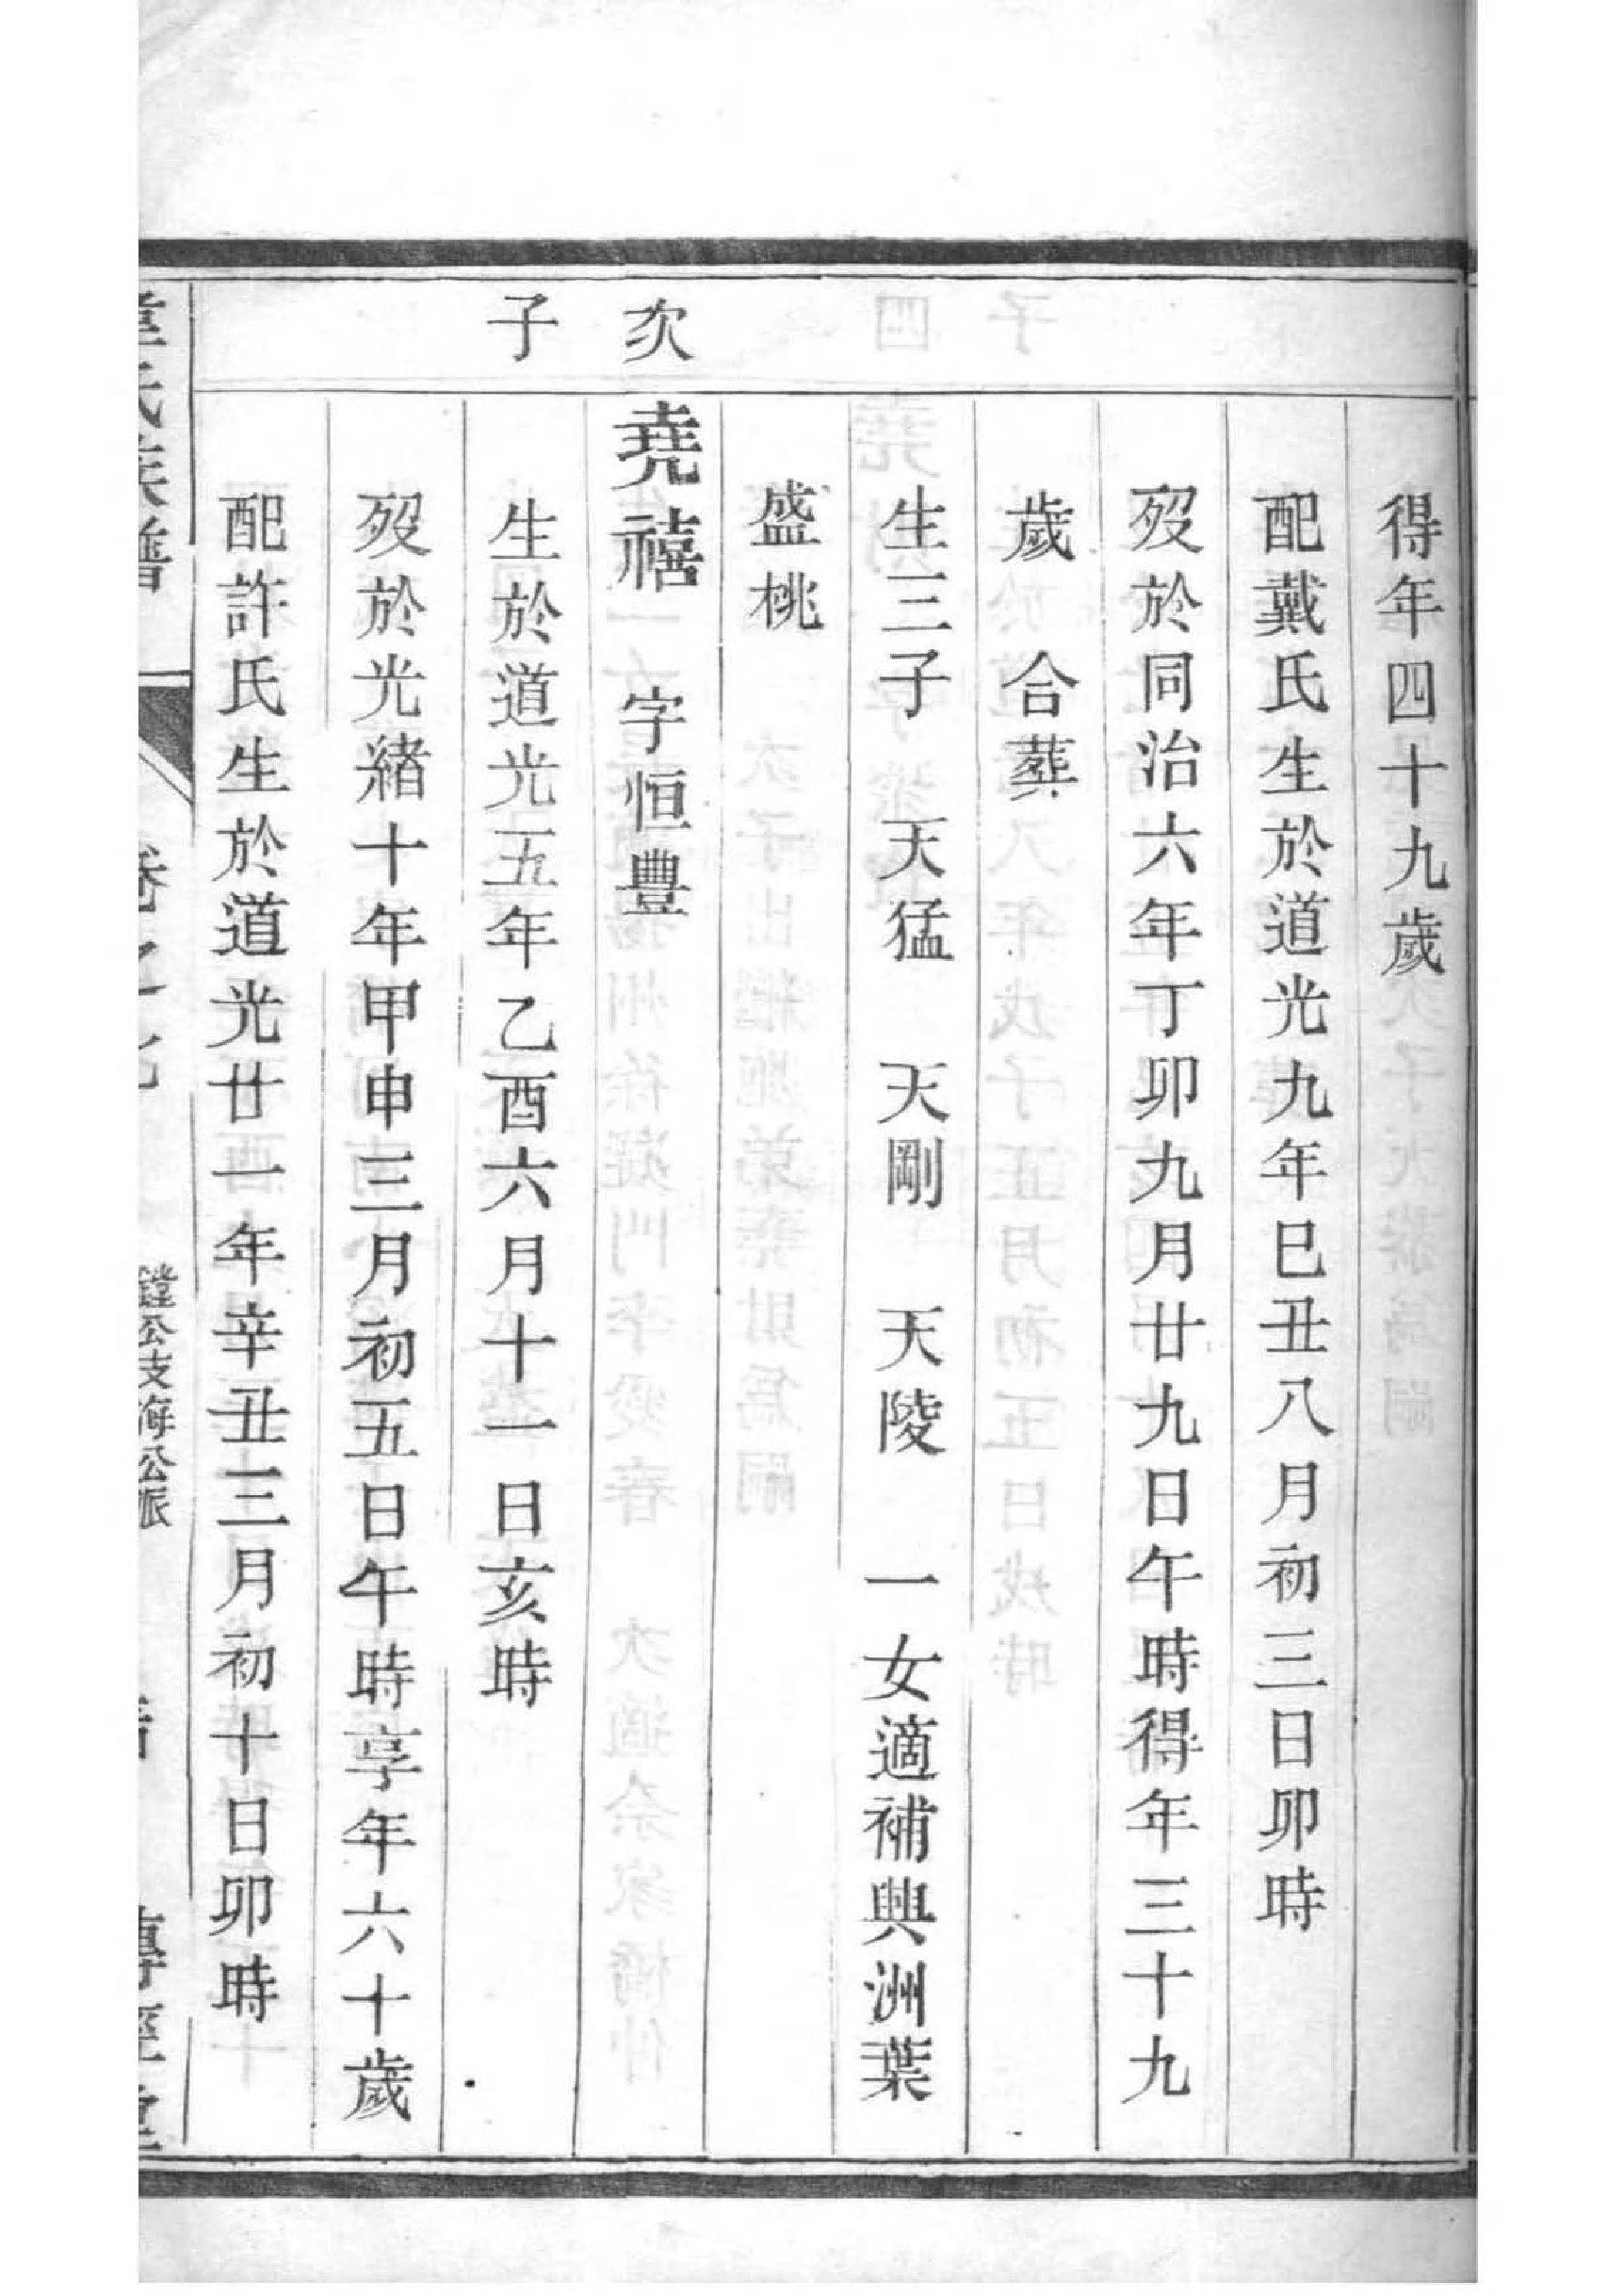 得年四十九歲
配戴氏生於道光九年巳丑八月初三日卯時
歿於同治六年丁卯九月廿九日午時得年三十九
歲 合葬
生三子 天猛 天剛 天陵 一女適補興洲葉
盛桃
次
堯禧 字恒豐
子
生於道光五年乙酉六月十一日亥時
歿於光緒十年甲申三月初五日午時享年六十歲
配許氏生於道光廿一年辛丑三月初十日卯時
氏族譜
卷之九
鏜公支海公派